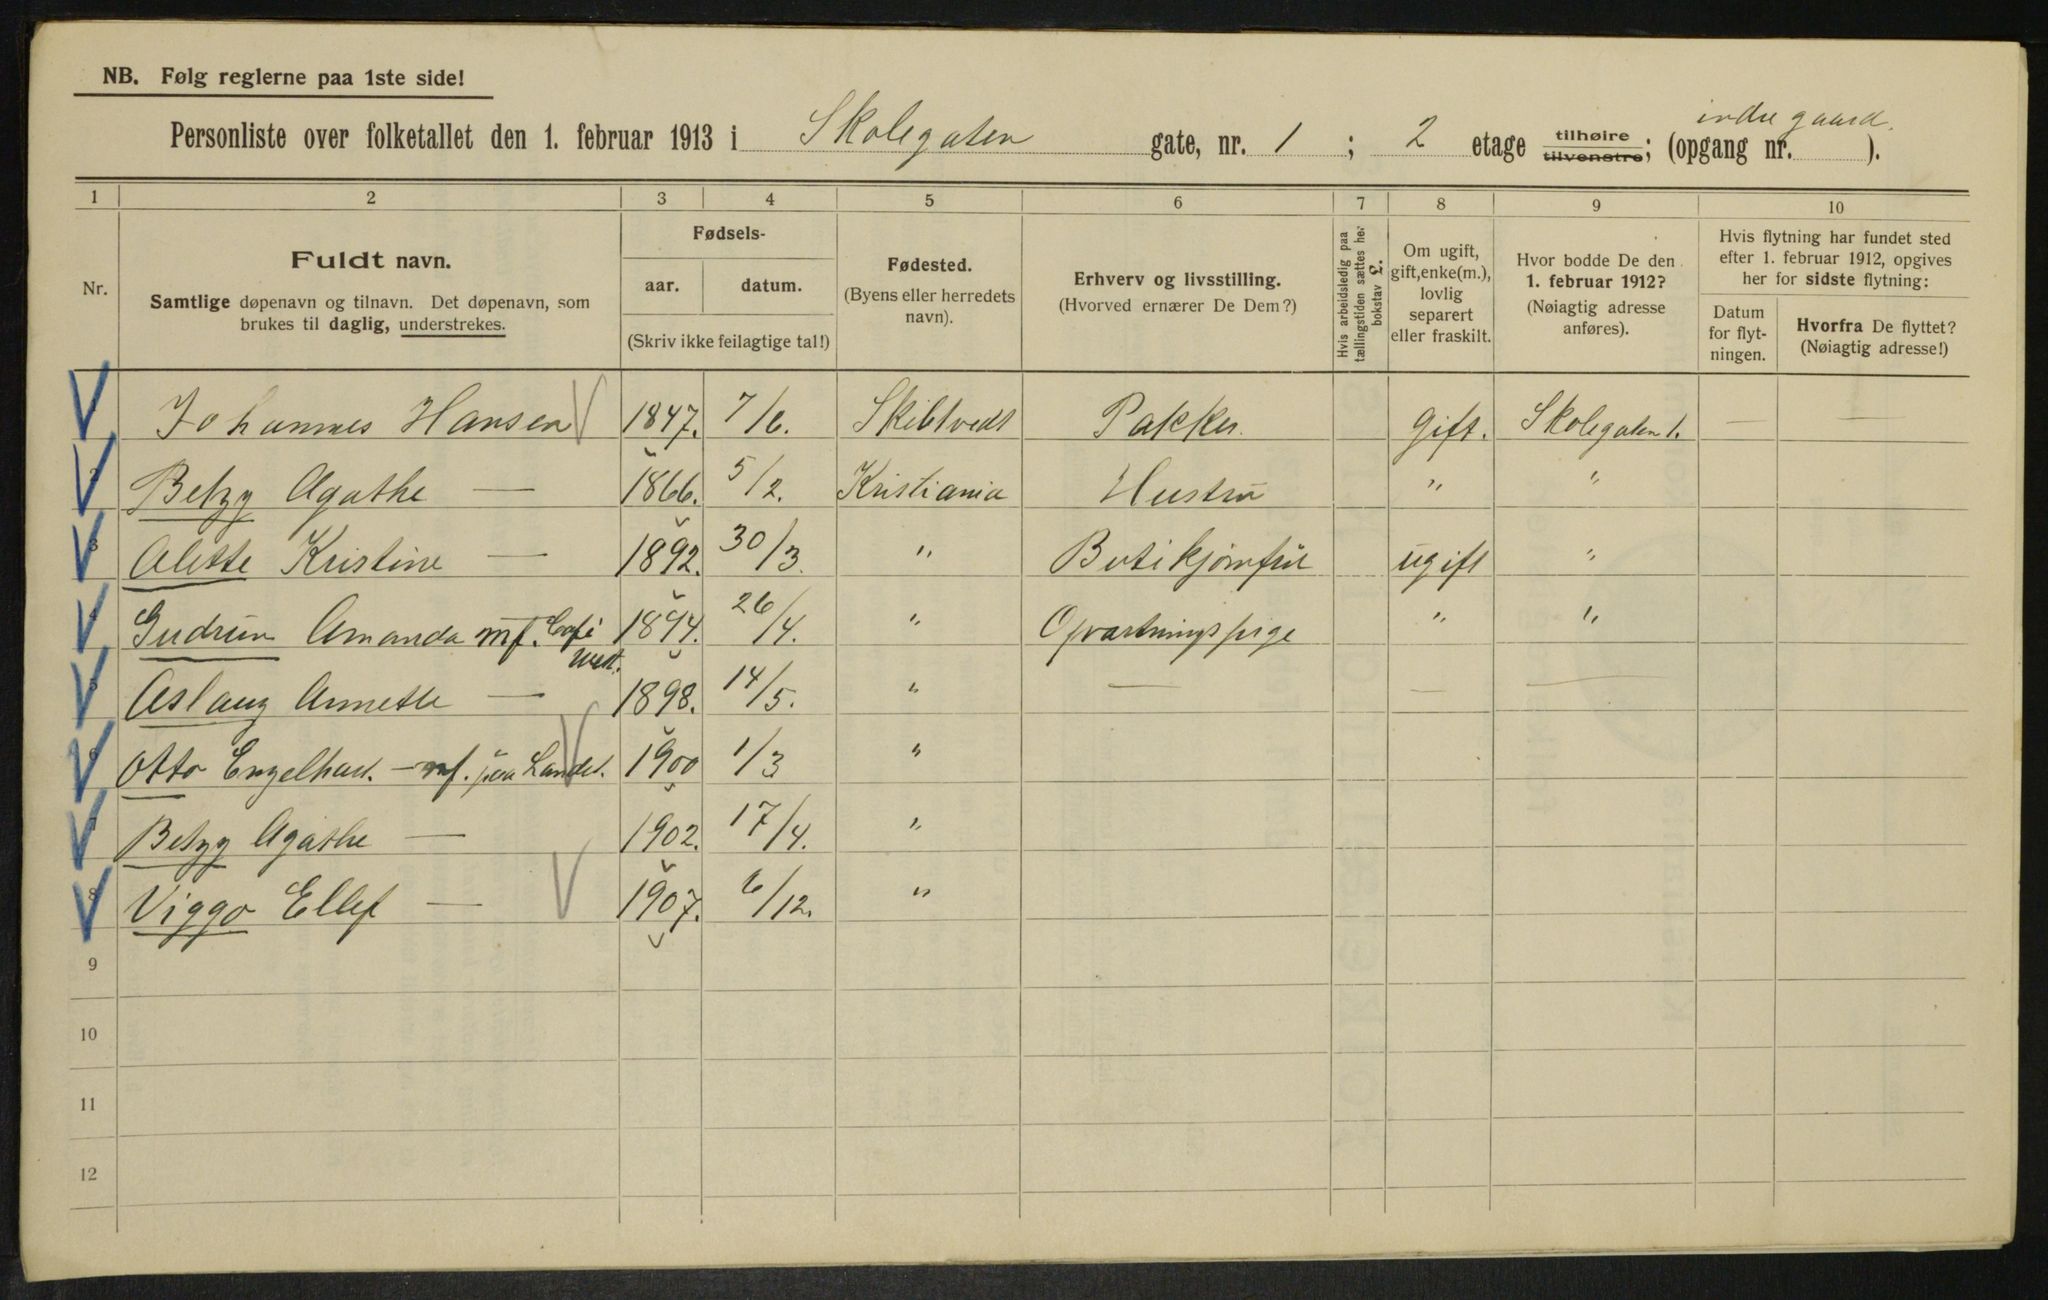 NB. Følg reglerne paa 1ste side!
indre gaard.
Personliste over folketallet den 1. februar 1913 i Skolegaten gate, nr. 1 ; 2 etage tilhøire tilvenstre; (opgang nr. ).
1 2 3 4 5 6 7 8 9 10
Nr.
Fuldt navn.
Samtlige døpenavn og tilnavn. Det døpenavn, som
brukes til daglig, understrekes.
Fødsels-
aar. datum.
(Skriv ikke feilagtige tal!)
Fødested.
(Byens eller herredets
navn).
Erhverv og livsstilling.
(Hvorved ernærer De Dem?)
Hvis arbeidsledig paa
tællingstiden sættes her
bokstav L.
Om ugift,
gift, enke(m.),
lovlig
separert
eller fraskilt.
Hvor bodde De den
1. februar 1912?
(Nøiagtig adresse
anføres).
Hvis flytning har fundet sted
efter 1. februar 1912, opgives
her for sidste flytning:
Datum
for flyt-
ningen.
Hvorfra De flyttet?
(Nøiagtig adresse!)
1 Johannes Hansen 1847. 7/6. Skibtvedt Pakker. gift. Skolegaten 1. — —
2 Betzy Agathe — 1866. 5/2. Kristiania Hustru " "
3 Alette Kristine — 1892. 30/3. " Butikjomfru ugift "
4 Gudrun Amanda mf. Café 1894. 26/4. " Opvartningspige " "
5 Aslaug Annette — 1898. 14/5. " — — —
6 Otto Engelhart. — mf. paa Landet. 1900 1/3 "
7 Betzy Agathe — 1902. 17/4. "
8 Viggo Ellef — 1907. 6/12. "
9
10
11
12